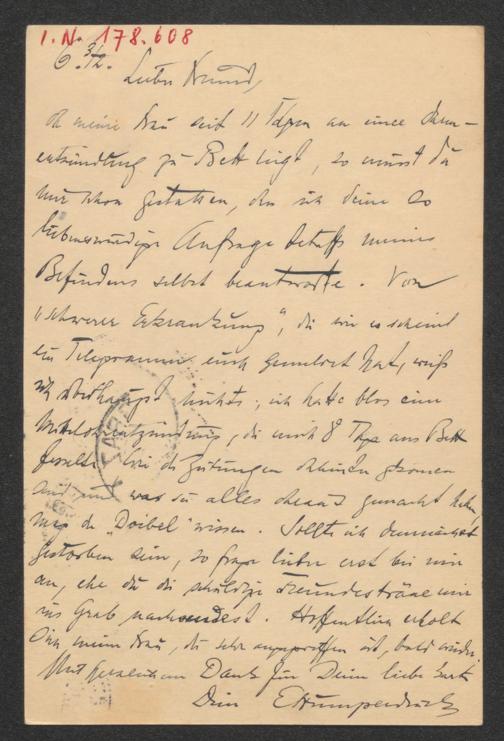 I.N. 178.608
6. 3/12.
Lieber Freund,
da meine Frau seit 11 Tagen an einer Darm-
entzündung zu Bett liegt, so musst du
mir schon gestatten, dass ich deine so
liebenswürdige Anfrage betreffs meines
Befindens selbst beantworte. Von
"schwerer Erkrankung", die wie es scheint
ein Telegramm euch gemeldet hat, weiß
ich überhaupt nichts; ich hatte blos eine
Mittelohrentzündung, die mich 8 Tage ans Bett
fesselte. Wie die Zeitungen dahinter gekommen
sind und was sie alles daraus gemacht haben,
mag der "Doibel" wissen. Sollte ich demnächst
gestorben sein, so frage lieber erst bei mir
an, ehe du die schuldige Freundesträne mir
ins Grab nachsendest. Hoffentlich erholt
sich meine Frau, die sehr angegriffen ist, bald wieder.
Mit herzlichem Dank für Deine liebe Karte
Dein EHumperdinck